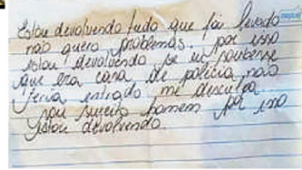 Estou devolvendo tudo que foi levado
não quero problemas. por isso
estou devolvendo se eu soubesse
que era casa de policia não
teria entrado mi desculpa
sou sujeito homem por isso
estou devolvendo.